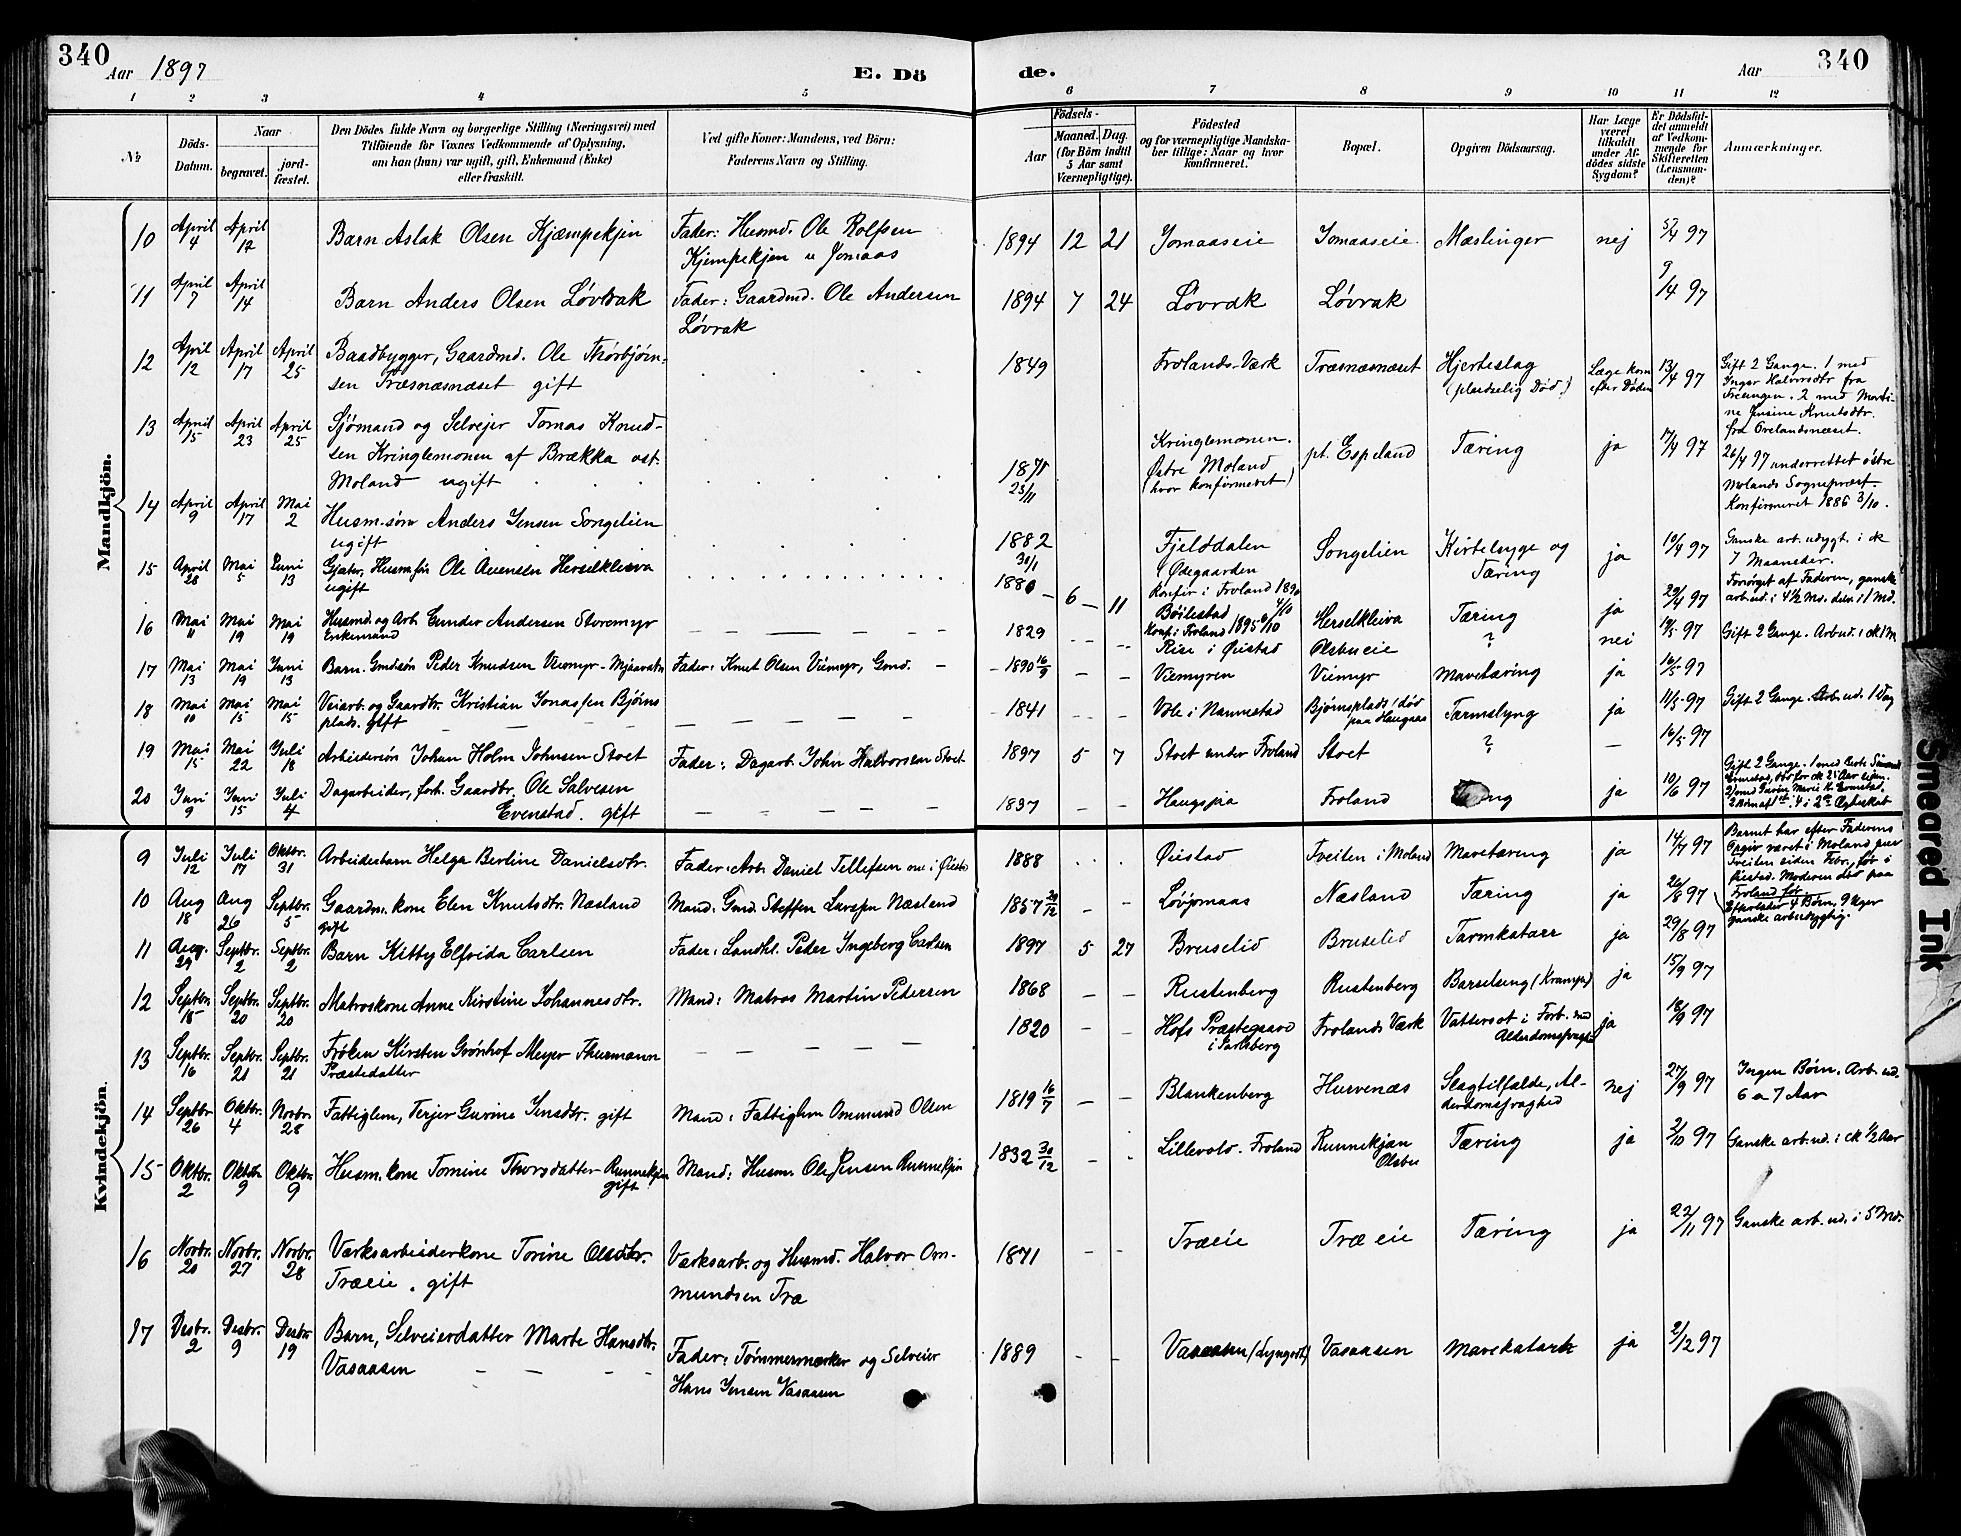 340
Aar 1897
E. Dö
de.
Aar
340
1 2 3 4 5
6 7 8 9 10 11 12
№
Döds-
Datum.
Naar
begravet.
jord-
fæstet.
Den Dödes fulde Navn og borgerlige Stilling (Næringsvei) med
Tilföiende for Voxnes Vedkommende af Oplysning,
om han (hun) var ugift, gift, Enkemand (Enke)
eller fraskilt.
Ved gifte Koner: Mandens, ved Börn:
Faderens Navn og Stilling.
Födsels-
Aar
Maaned.
Dag.
(for Börn indtil
5 Aar samt
Værnepligtige).
Födested
og for værnepligtige Mandska-
ber tillige: Naar og hvor
konfirmeret.
Bopæl.
Opgiven Dödsaarsag.
Har Læge
været
tilkaldt
under Af-
dödes sidste
Sygdom?
Er Dödsfal-
det anmeldt
af Vedkom-
mende for
Skifteretten
(Lensman-
den)?
Anmærkninger.
Mandkjön.
10 April 4 April 12 Barn Aslak Olsen Kjæmpekjen Fader: Husmd. Ole Rolfsen
Kjempekjen u Jomaas
1894 12 21 Jomaaseie Jomaaseie Mæslinger nej 5/4 97
11 April 7 April 14 Barn Anders Olsen Løvrak Fader: Gaardmd. Ole Andersen
Løvrak
1894 7 24 Løvrak Løvrak 9/4 97
12 April 12 April 17 April 25 Baadbygger, Gaardmd. Ole Thorbjørn-
sen Træsnæsnæset gift
1849 Frolands Værk Træsnæsnæset Hjerteslag
(pludselig Død) Læge kom
efter Døden 13/4 97 Gift 2 Gange. 1 med
Inger Halvorsdtr fra
2 med Marti-
ne Jensine Knutsdtr.
fra Ovelandsnæset.
13 April 15 April 23 April 25 Sjømand og Selvejer Tomas Knud-
sen Kringlemonen af Brækka øst.
Moland ugift
1871
23/11 Kringlemonen.
Østre Moland
(hvor konfirmeret) pt. Espeland Tæring ja 17/4 97 26/4 97 underrettet østre
Molands Sogneprest.
Konfirmeret 1886 3/10.
14 April 9 April 17 Mai 2 Husm.søn Anders Jensen Songelien
ugift
1882
30/1 Fjelddalen
i Ødegaarden
Songelien Kirtelsyge og
Tæring ja 10/4 97 Ganske arb.udygt. i ck
7 Maaneder.
15 April 28 Mai 5 Juni 13 Gjæter, Husm.søn Ole Avensen Herselkleiva
ugift
1880 – 6 – 11 Konfir i Froland 189
Bøilestad 4/10
Konf. i Froland 1895 Herselkleiva Tæring ja 29/4 97 Forsørget af Faderen, ganske
arb.ud. i 4½ Md.
16 Mai 11 Mai 19 Mai 19 Husmd. og Arb. Gunder Andersen Storemyr
Enkemand
1829 Rise i Øiestad Olsbueie ? nei 12/5 97 Gift 2 Gange. Arb ud. i ck 1 M
17 Mai 13 Mai 19 Juni 13 Barn. Gmdsøn Peder Knudsen Viemyr - Mjaavatn Fader: Knut Olsen Viemyr, Gmd.
1890 16/9 Viemyren Viemyr Mavetæring ja 16/5 97
18 Mai 10 Mai 15 Mai 15 Veiarb. og Gaardbr. Kristian Jonassen Bjørns
plads. gift
1841 Vole i Nannestad Bjørnsplads (død
paa Haugaas Tarmslyng ja 11/5 97 Gift 2 Gange. Arb ud. 1 Dag
19 Mai 15 Mai 22 Juli 18 Arbeidersøn Johan Holm Johnsen Stoet Fader: Dagarb. John Halvorsen Stoet
1897 5 7 Stoet under Froland Stoet ? – 16/5 97
20 Juni 9 Juni 15 Juli 4 Dagarbeider, forh. Gaardbr. Ole Salvesen
Evenstad. gift
1837 Haugsjaa Froland ja 10/6 97 Gift 2 Gange. 1 med
Kvindekjön.
9 Juli 12 Juli 17 Oktbr. 31 Arbeiderbarn Helga Berline Danielsdtr. Fader: Arb. Daniel Tellefsen
1888 Øiestad Tveiten i Moland Mavetæring ja 14/7 97 Barnet har efter Faderens
Opgiv været i Moland
Tveiten siden Febr., før i
Øiestad. Moderen død paa
Froland før.
10 Aug 18 Aug 26 Septbr. 5 Gaardm. kone Elen Knutsdtr. Næsland
gift Mand: Gmd. Steffen Larsen Næsland
1857 Løvjomaas Næsland Tæring ja 26/8 97 Efterlader 4 Børn, 9 Uger
ganske arbeidsdygtig.
11 Aug. 29 Septbr. 2 Septbr. 2 Barn Kitty Elfrida Carlsen Fader: Landhl. Peder Ingeberg Carlsen
1897 5 27 Bruselid Bruselid Tarmkatarr ja 29/8 97
12 Septbr. 15 Septbr. 20 Septbr. 20 Matroskone Anne Kirstine Johannesdtr. Mand: Matros Martin Pedersen
1868 Rustenberg Rustenberg Barselseng (Krampe) ja 15/9 97
13 Septbr. 16 Septbr. 21 Septbr. 21 Frøken Kirsten Grønhof Meyer Thurmann
Præstedatter
1820 Hofs Præstegaard
i Jarlsberg Frolands Værk Vattersot i Forb. med
ja 18/9 97
14 Septbr 26 Oktbr. 4 Novbr. 28 Fattiglem, Terjer Gurine Jensdtr. gift Mand: Fattiglem Ommund Olsen
1819 16/7 Blankenberg Hurvenæs Slagtilfælde, Al-
derdomssvaghed nej 27/9 97 Ingen Børn. Arb. ud.
6 a 7 Aar
15 Oktbr. 2 Oktbr. 9 Oktbr. 9 Husm. kone Tomine Thorsdatter Runnekjen
gift Mand: Husm. Ole Jensen Runnekjen
1832 30/12 Lillevold. Froland Runnekjan
Olsbu Tæring ja 2/10 97 Ganske arb. ud. i ck ½ Aar
16 Novbr. 20 Novbr. 27 Novbr. 28 Værksarbeiderkone Torine Olsdtr.
Træeie, gift Værksarb. og Husmd. Halvor Om-
mundsen Træ
1871 Træeie Træeie Tæring ja 22/11 97 Ganske arb. ud. i 5 Md.
17 Desbr. 2 Desbr. 9 Desbr 19 Barn, Selveierdatter Marte Hansdtr.
Vasaasen Fader: Tømmermerker og Selveier
Hans Jensen Vasaasen
1889 Vasaasen Vasaasen Mavekatarh ja 2/12 97
Smeared Ink